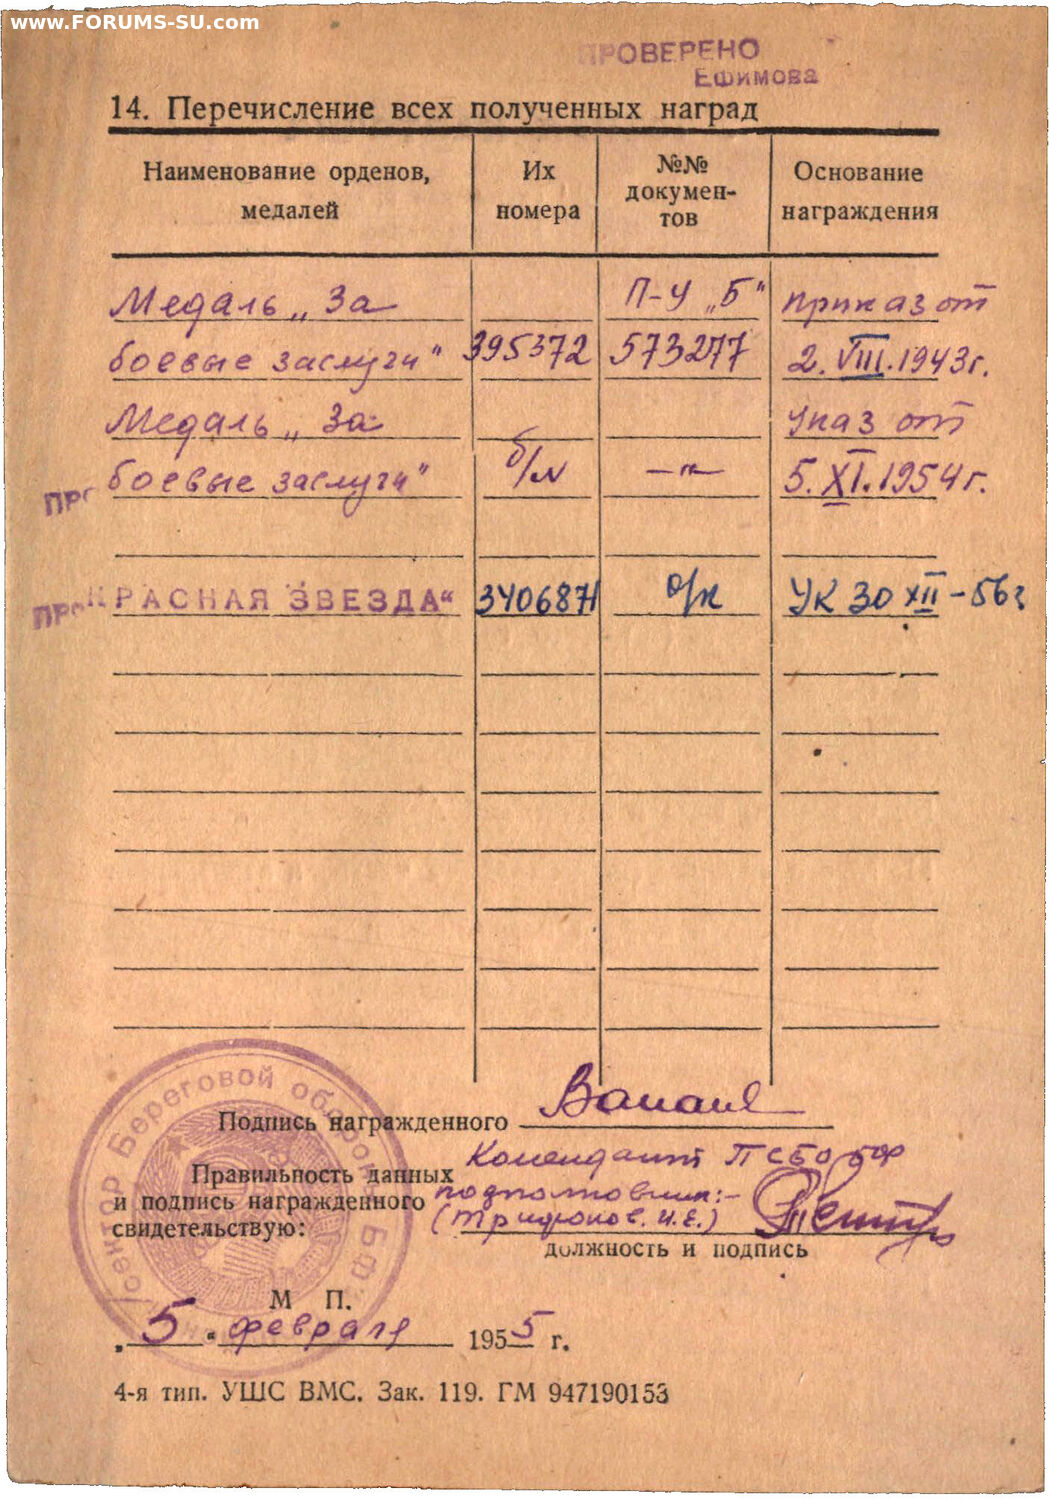 www.FORUMS-SU.com
ПРОВЕРЕНО
Ефимова
14. Перечисление всех полученных наград
Наименование орденов, медалей
Их номера
№№ докумен-тов
Основание награждения
Медаль „За П-У „Б" приказ от
боевые заслуги" 395372 573277 2.VIII.1943г.
Медаль „За Указ от
боевые заслуги" б/н —„— 5.XI.1954г.
ПРО
ПРО
КРАСНАЯ ЗВЕЗДА" 3406871 о/к УК 30 XII-56г
Подпись награжденного
Правильность данных
и подпись награжденного
свидетельствую:
Комендант ПСБО
подполковник:-
(Трифонов. И.Е.)
должность и подпись
сектор Береговой обороны
М П.
„5" февраля 1955 г.
4-я тип. УШС ВМС. Зак. 119. ГМ 947190153